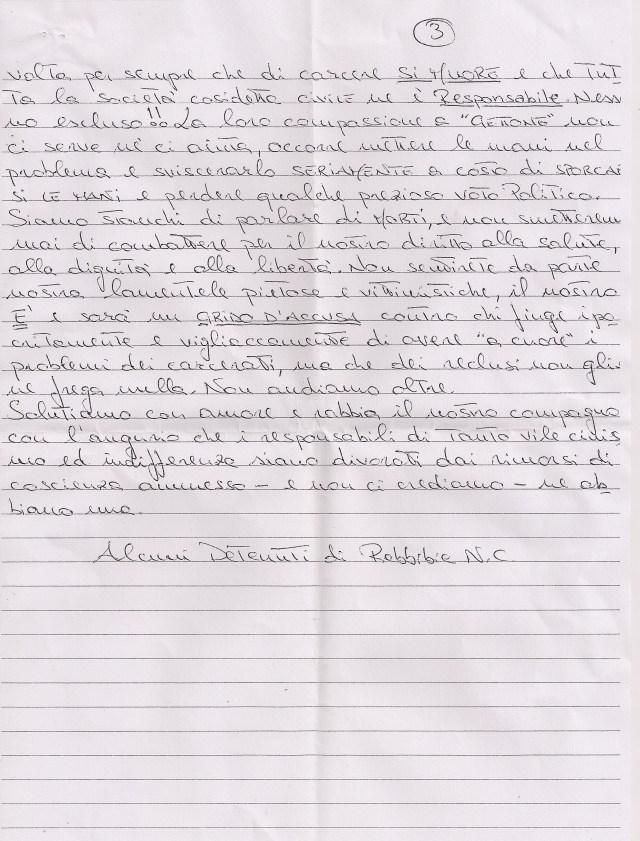 3
volta per sempre che di carcere SI MUORE e che TUT
TA la società cosidetta civile ne è Responsabile. Ness
uno escluso!! La loro compassione a "GETTONE" non
ci serve nè ci aiuta, occorre mettere le mani nel
problema e sviscerarlo SERIAMENTE a costo di SPORCAR
SI LE MANI e perdere qualche prezioso voto Politico.
Siamo stanchi di parlare di MORTI, e non smetterem
mai di combattere per il nostro diritto alla salute,
alla dignità e alla libertà. Non sentirete da parte
nostra lamentele pietose e vittimistiche, il nostro
È e sarà un GRIDO D'ACCUSA contro chi finge ipo
critamente e vigliaccamente di avere "a cuore" i
problemi dei carcerati, ma che dei reclusi non gli
ne frega nulla. Non andiamo oltre.
Salutiamo con amore e rabbia il nostro compagno
con l'augurio che i responsabili di tanto vile cinis
mo ed indifferenza siano divorati dai rimorsi di
coscienza ammesso – e non ci crediamo – ne ab
biano una.
Alcuni Detenuti di Rebibbia N.C.